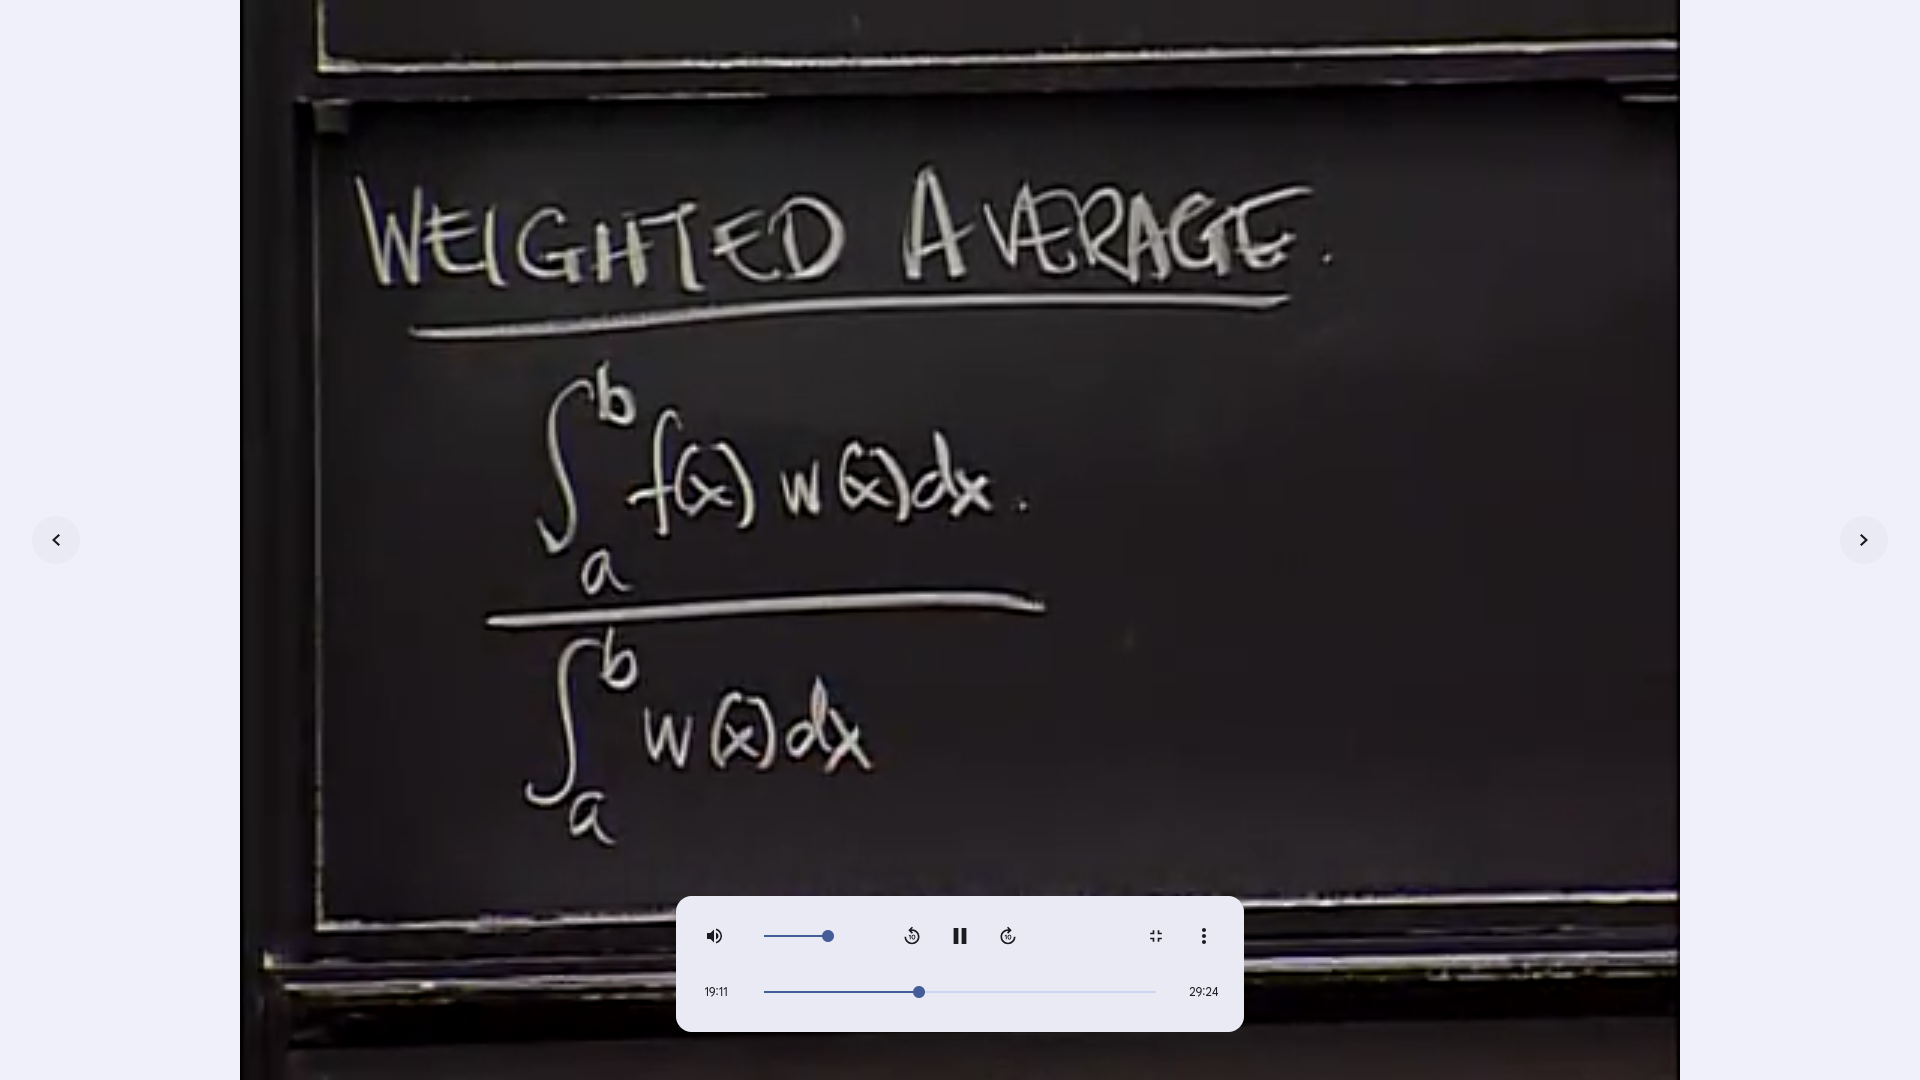 WEIGHTED AVERAGE.
∫_a^b f(x) w(x) dx.
∫_a^b w(x) dx
10 10
19:11 29:24